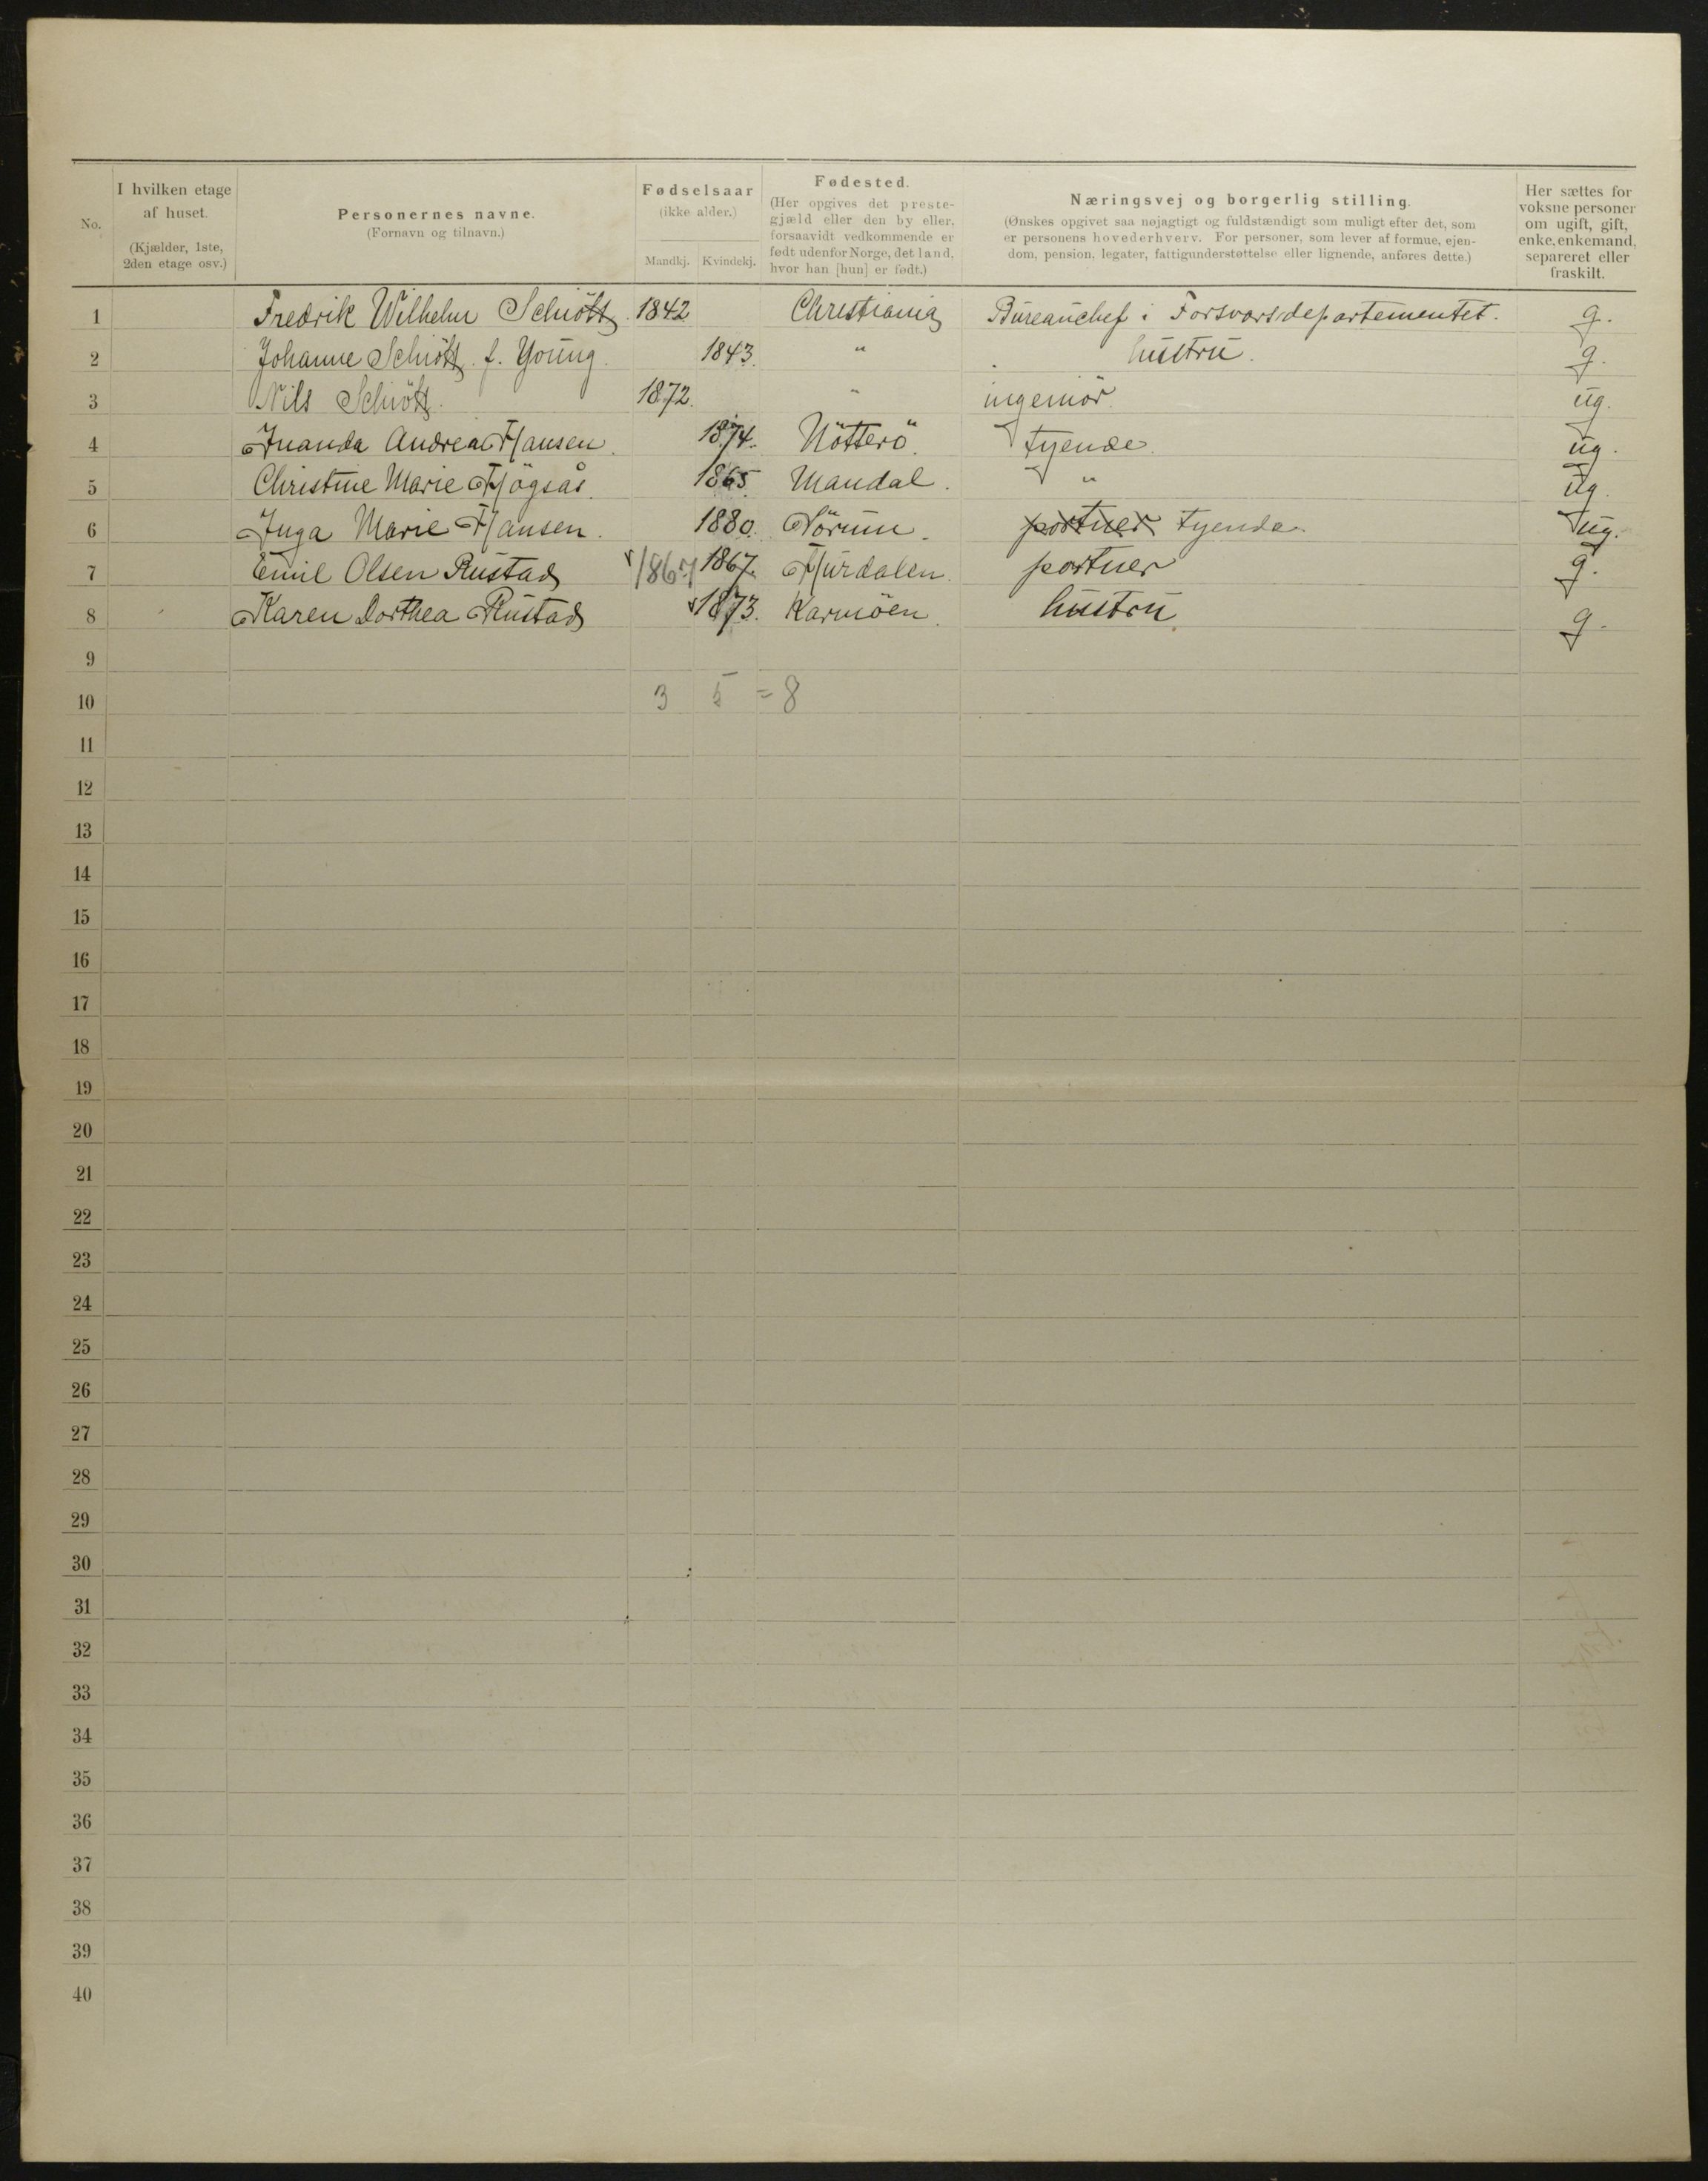 No. | I hvilken etage af huset. (Kjælder, 1ste, 2den etage osv.) | Personernes navne. (Fornavn og tilnavn.) | Fødselsaar (ikke alder.) Mandkj. Kvindekj. | Fødested. (Her opgives det prestegjæld eller den by eller, forsaavidt vedkommende er født udenfor Norge, det land, hvor han [hun] er født.) | Næringsvej og borgerlig stilling. (Ønskes opgivet saa nøjagtigt og fuldstændigt som muligt efter det, som er personens hovederhverv. For personer, som lever af formue, ejendom, pension, legater, fattigunderstøttelse eller lignende, anføres dette.) | Her sættes for voksne personer om ugift, gift, enke, enkemand, separeret eller fraskilt.
1 Fredrik Wilhelm Schiøtt 1842 Christiania Bureauchef i Forsvarsdepartementet. g.
2 Johanne Schiøtt f. Young. 1843. " hustru. g.
3 Nils Schiøtt. 1872. " ingeniør. ug.
4 Andrea Hansen. 1874. Nötterö. tyende. ug.
5 Christine Marie Högsås. 1865. Mandal. " ug.
6 Inga Marie Hansen. 1880. portner tyende. ug.
7 Emil Olsen Rustad 1867 1867. Hurdalen. portner g.
8 Karen Dorthea Rustad 1873. Karmöen. hustru g.
9
10 3 5 = 8
11
12
13
14
15
16
17
18
19
20
21
22
23
24
25
26
27
28
29
30
31
32
33
34
35
36
37
38
39
40